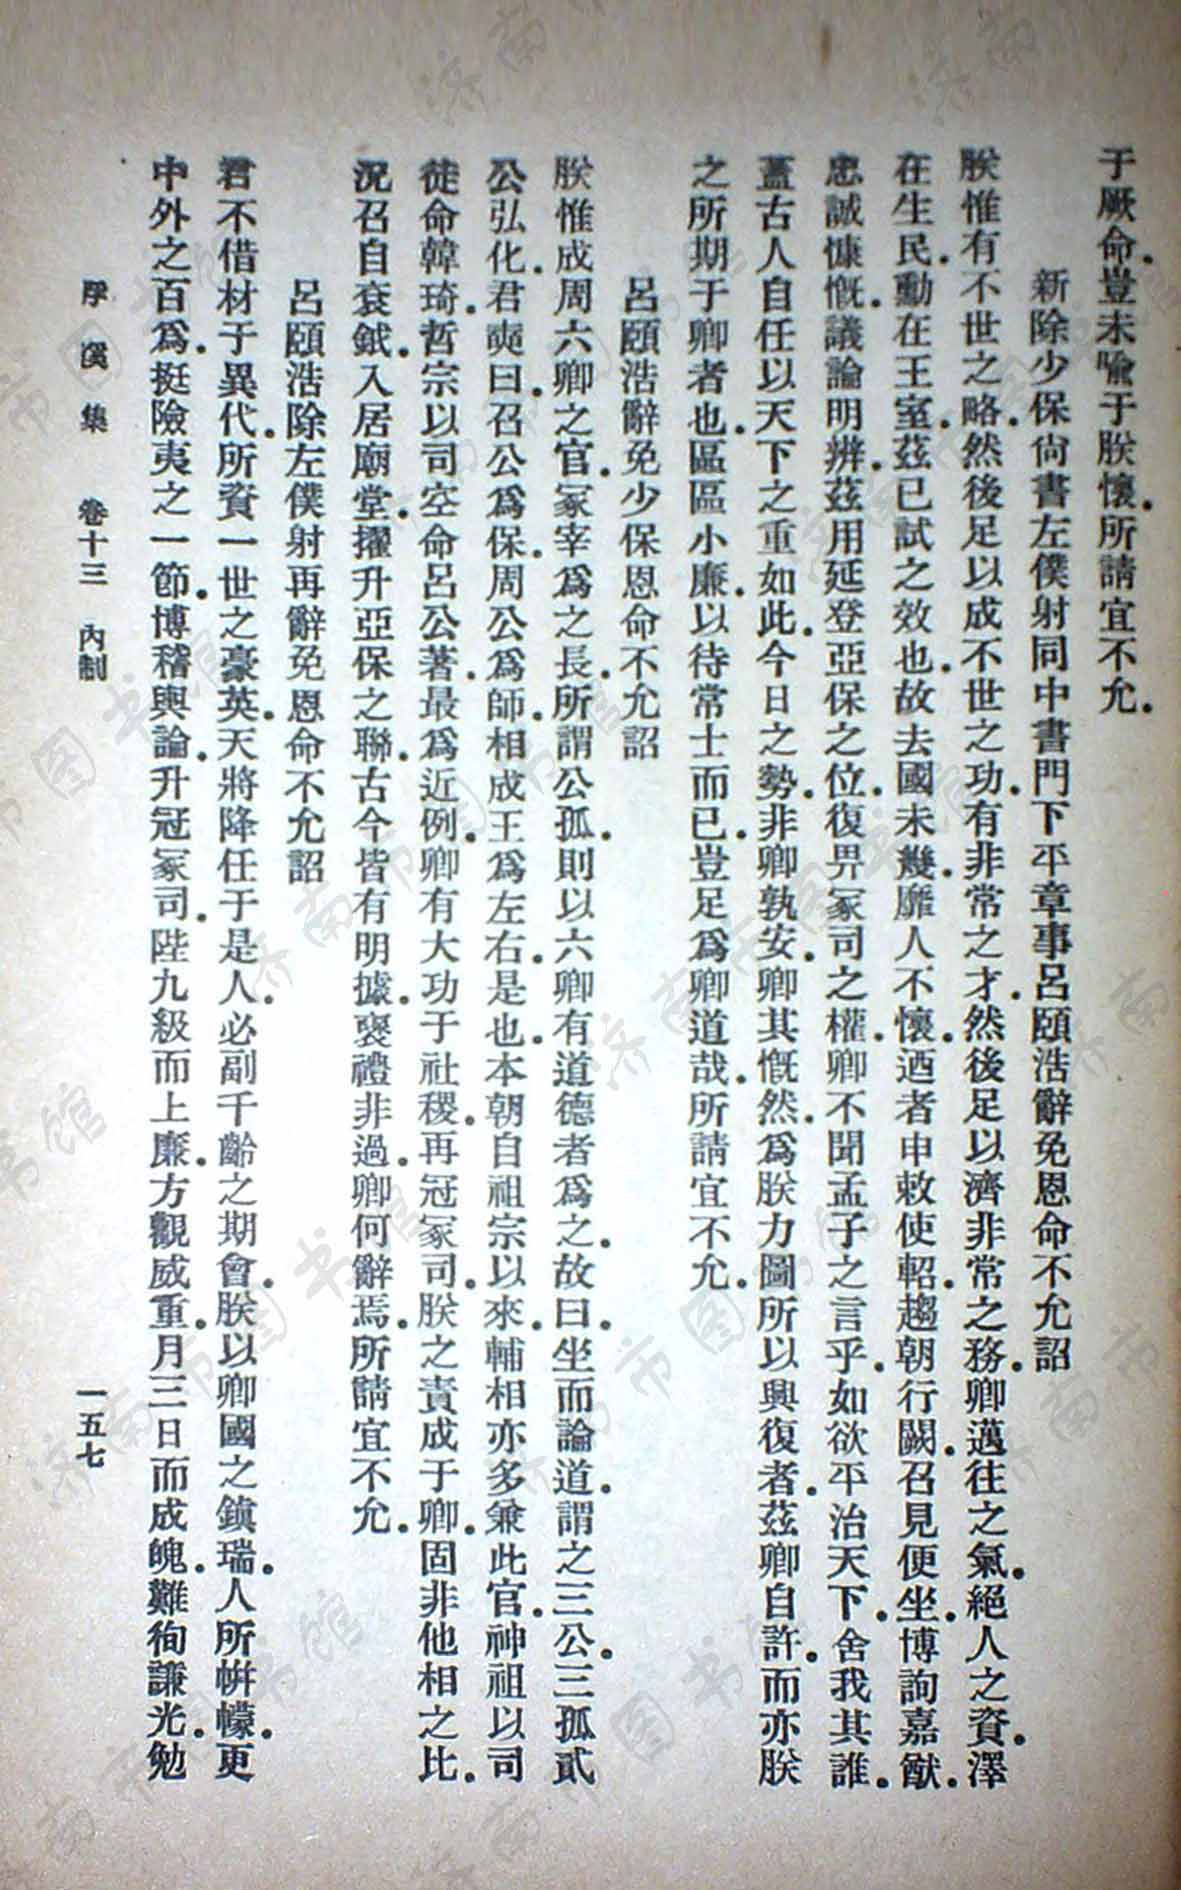 于厥命．豈未喩于朕懷．所請宜不允．
新除少保尙書左僕射同中書門下平章事呂頤浩辭免恩命不允詔
朕惟有不世之略．然後足以成不世之功．有非常之才．然後足以濟非常之務．卿邁往之氣．絕人之資．澤
在生民．勳在王室．茲已試之效也．故去國未幾．靡人不懷．迺者申敕使軺．趨朝行闕．召見便坐．博詢嘉猷．
忠誠慷慨．議論明辨．茲用延登亞保之位．復畀冢司之權．卿不聞孟子之言乎．如欲平治天下．舍我其誰．
蓋古人自任以天下之重如此．今日之勢．非卿孰安．卿其慨然．爲朕力圖所以興復者．茲卿自許．而亦朕
之所期于卿者也．區區小廉．以待常士而已．豈足爲卿道哉．所請宜不允．
呂頤浩辭免少保恩命不允詔
朕惟成周六卿之官．冢宰爲之長．所謂公孤．則以六卿有道德者爲之．故曰．坐而論道．謂之三公．三孤貳
公弘化．君奭曰．召公爲保．周公爲師．相成王爲左右．是也．本朝自祖宗以來．輔相亦多兼此官．神祖以司
徒命韓琦．哲宗以司空命呂公著．最爲近例．卿有大功于社稷．再冠冢司．朕之責成于卿．固非他相之比．
況召自袞鉞．入居廟堂．擢升亞保之聯．古今皆有明據．褒禮非過．卿何辭焉．所請宜不允．
呂頤浩除左僕射再辭免恩命不允詔
君不借材于異代．所資一世之豪英．天將降任于是人．必副千齡之期會．朕以卿國之鎭瑞．人所帡幪．更
中外之百爲．挺險夷之一節．博稽輿論．升冠冢司．陛九級而上廉．方觀威重．月三日而成魄．難徇謙光．勉
浮溪集 卷十三 內制 一五七
济南市图书馆